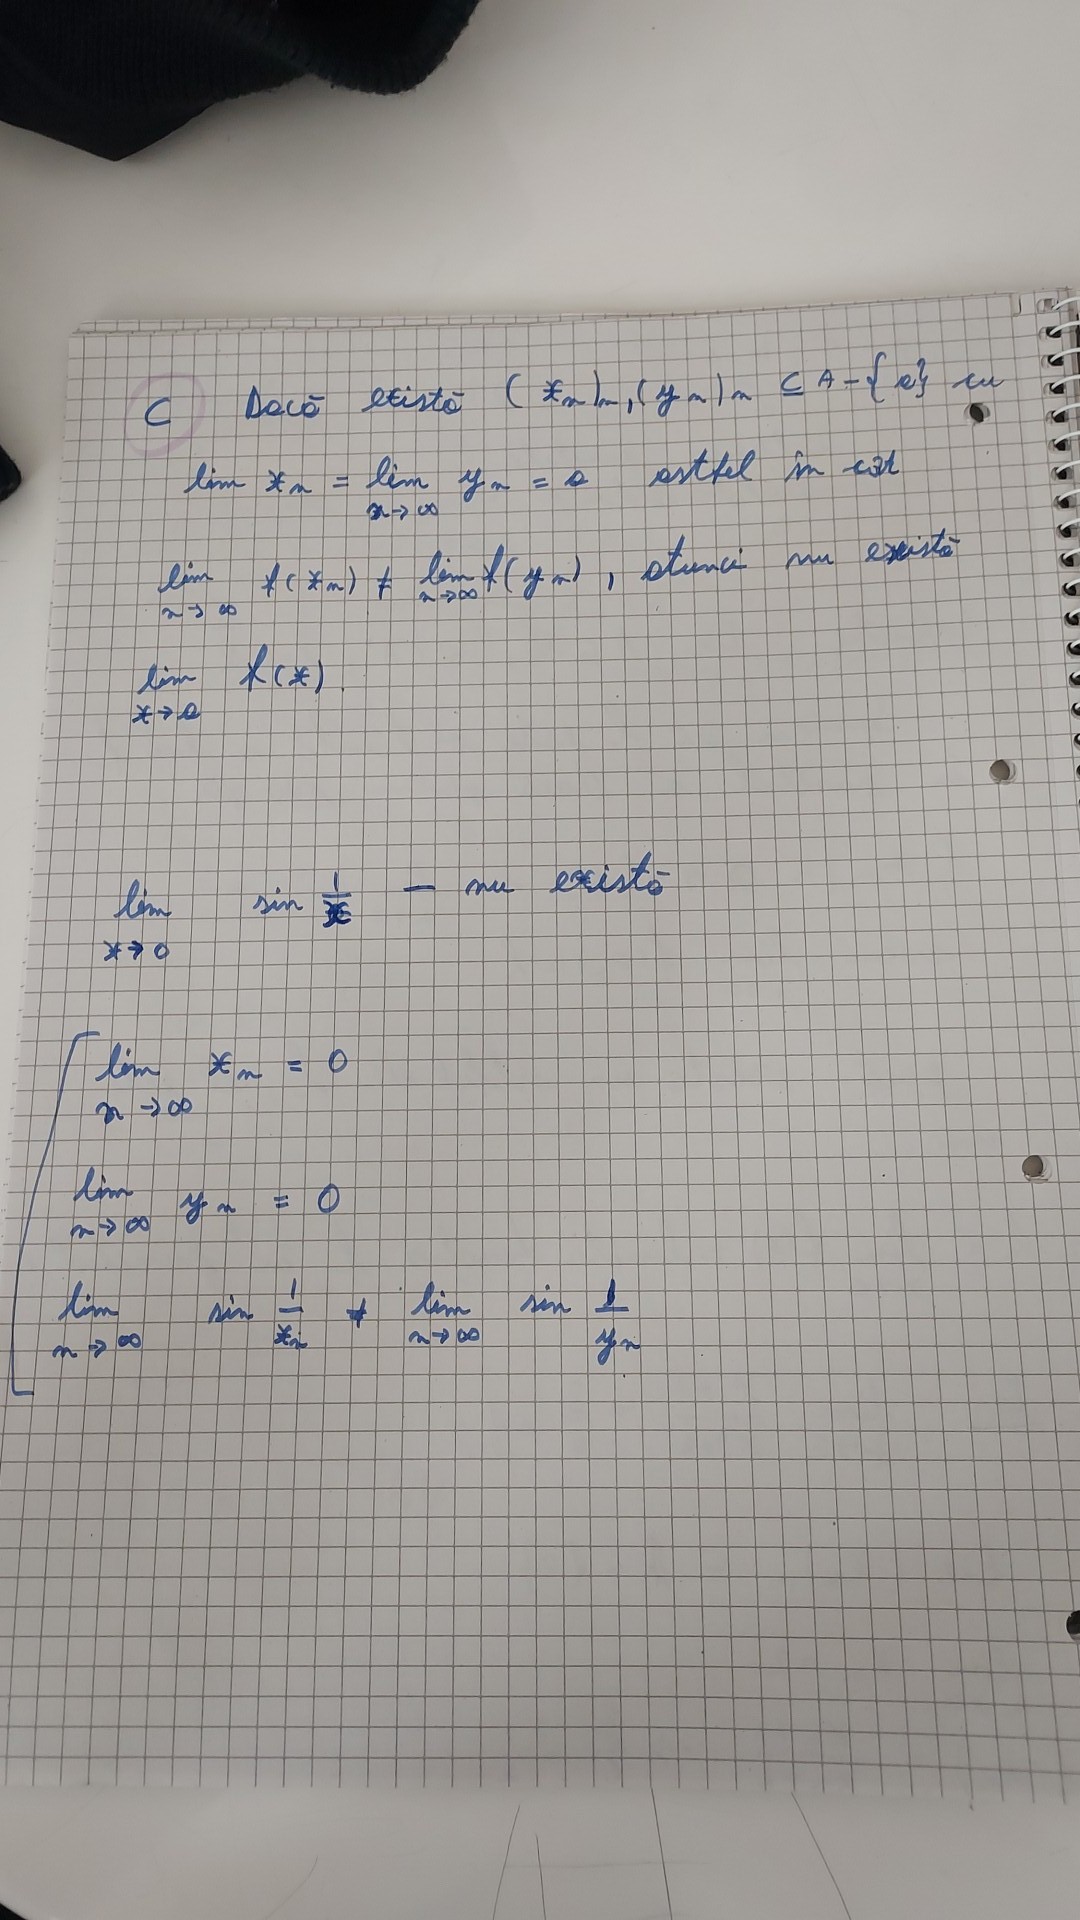 C Dacă există (xn)n, (yn)n ⊆ A-{a} cu
lim xn = lim yn = a astfel în cât
n→∞
lim f(xn) ≠ lim f(yn), atunci nu există
n→∞ n→∞
lim f(x).
x→a
lim sin 1/x — nu există
x→0
lim xn = 0
n→∞
lim yn = 0
n→∞
lim sin 1/xn ≠ lim sin 1/yn
n→∞ n→∞